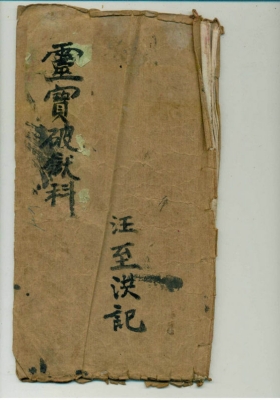 靈寶破獄科
汪至洪記